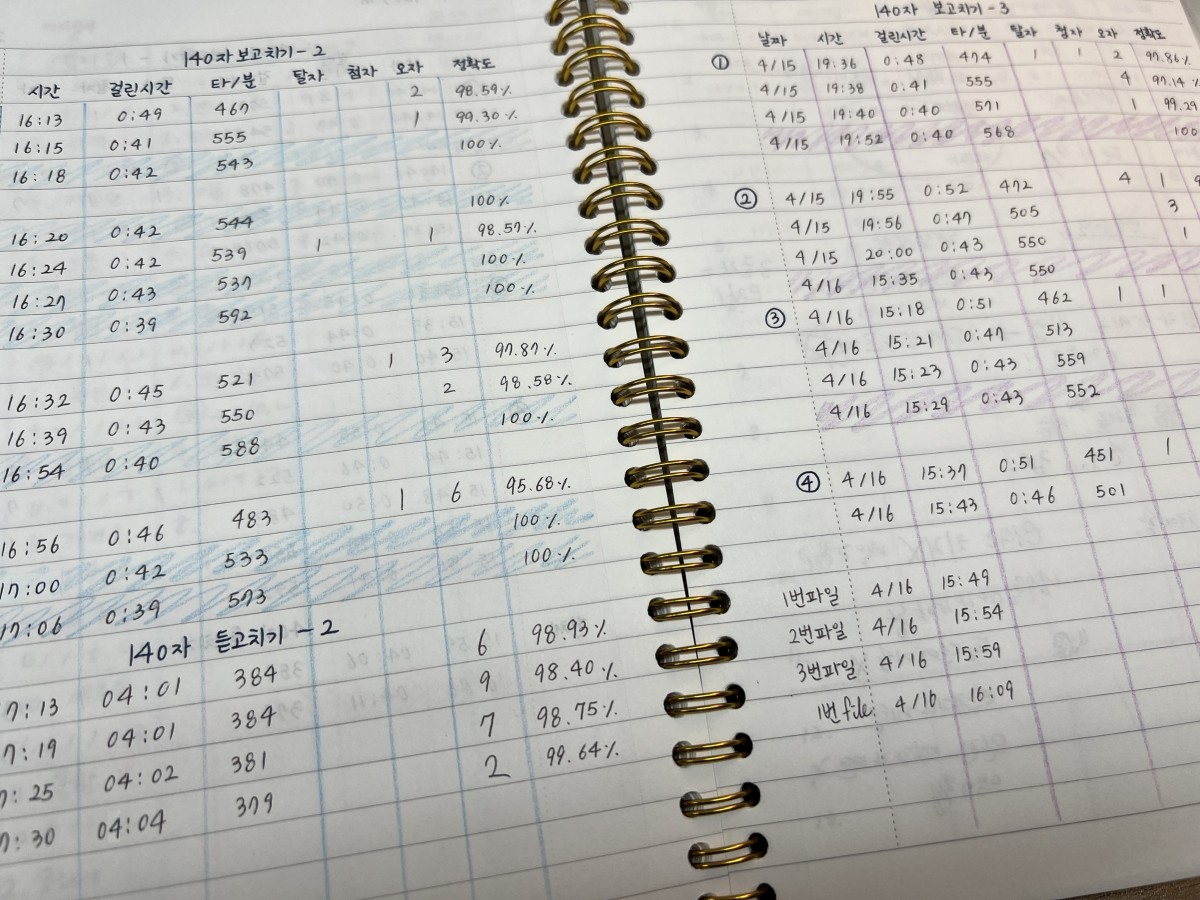 140자 보고치기 - 2
시간 걸린시간 타/분 탈자 첨자 오자 정확도
16:13 0:49 467 2 98.59%
16:15 0:41 555 1 99.30%
16:18 0:42 543 100%
16:20 0:42 544 100%
16:24 0:42 539 1 1 98.57%
16:27 0:43 537 100%
16:30 0:39 592 100%
16:32 0:45 521 1 3 97.87%
16:39 0:43 550 2 98.58%
16:54 0:40 588 100%
16:56 0:46 483 1 6 95.68%
17:00 0:42 533 100%
17:06 0:39 573 100%
140자 듣고치기 - 2
7:13 04:01 384 6 98.93%
7:19 04:01 384 9 98.40%
7:25 04:02 381 7 98.75%
7:30 04:04 379 2 99.64%
140자 보고치기 - 3
날짜 시간 걸린시간 타/분 탈자 첨자 오자 정확도
① 4/15 19:36 0:48 474 1 1 2 97.86%
4/15 19:38 0:41 555 4 97.14%
4/15 19:40 0:40 571 1 99.29
4/15 19:52 0:40 568 100
② 4/15 19:55 0:52 472 4 1 9
4/15 19:56 0:47 505 3
4/15 20:00 0:43 550 1
4/16 15:35 0:43 550
③ 4/16 15:18 0:51 462 1 1
4/16 15:21 0:47 513
4/16 15:23 0:43 559
4/16 15:29 0:43 552
④ 4/16 15:37 0:51 451 1
4/16 15:43 0:46 501
1번파일 4/16 15:49
2번파일 4/16 15:54
3번파일 4/16 15:59
1번file 4/16 16:09